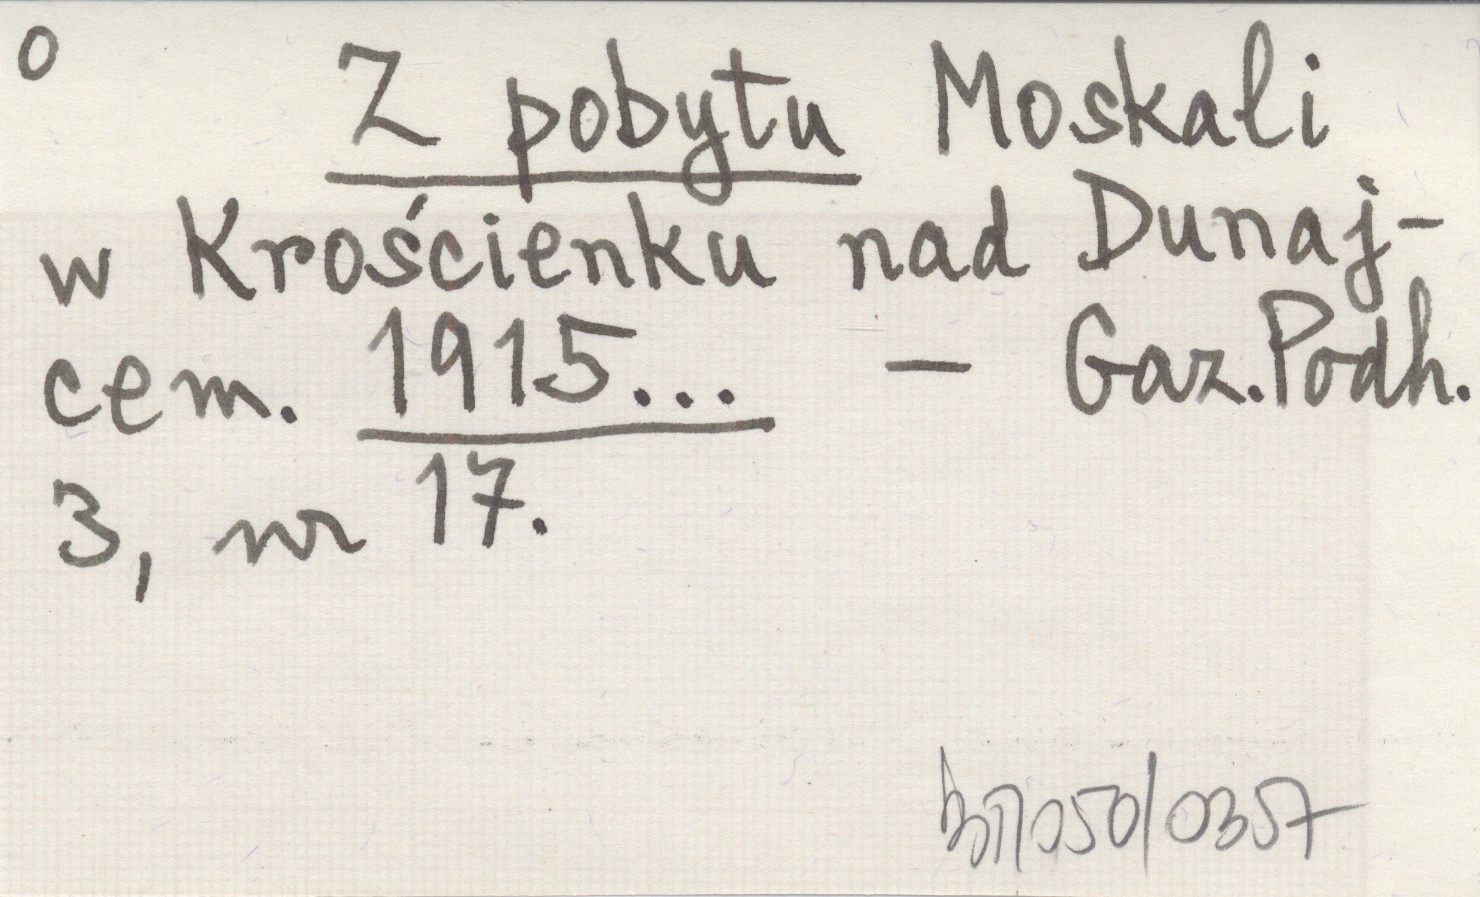 o
Z pobytu Moskali
w Krościenku nad Dunaj-
cem. 1915... – Gaz. Podh.
3, nr 17.
050/0357